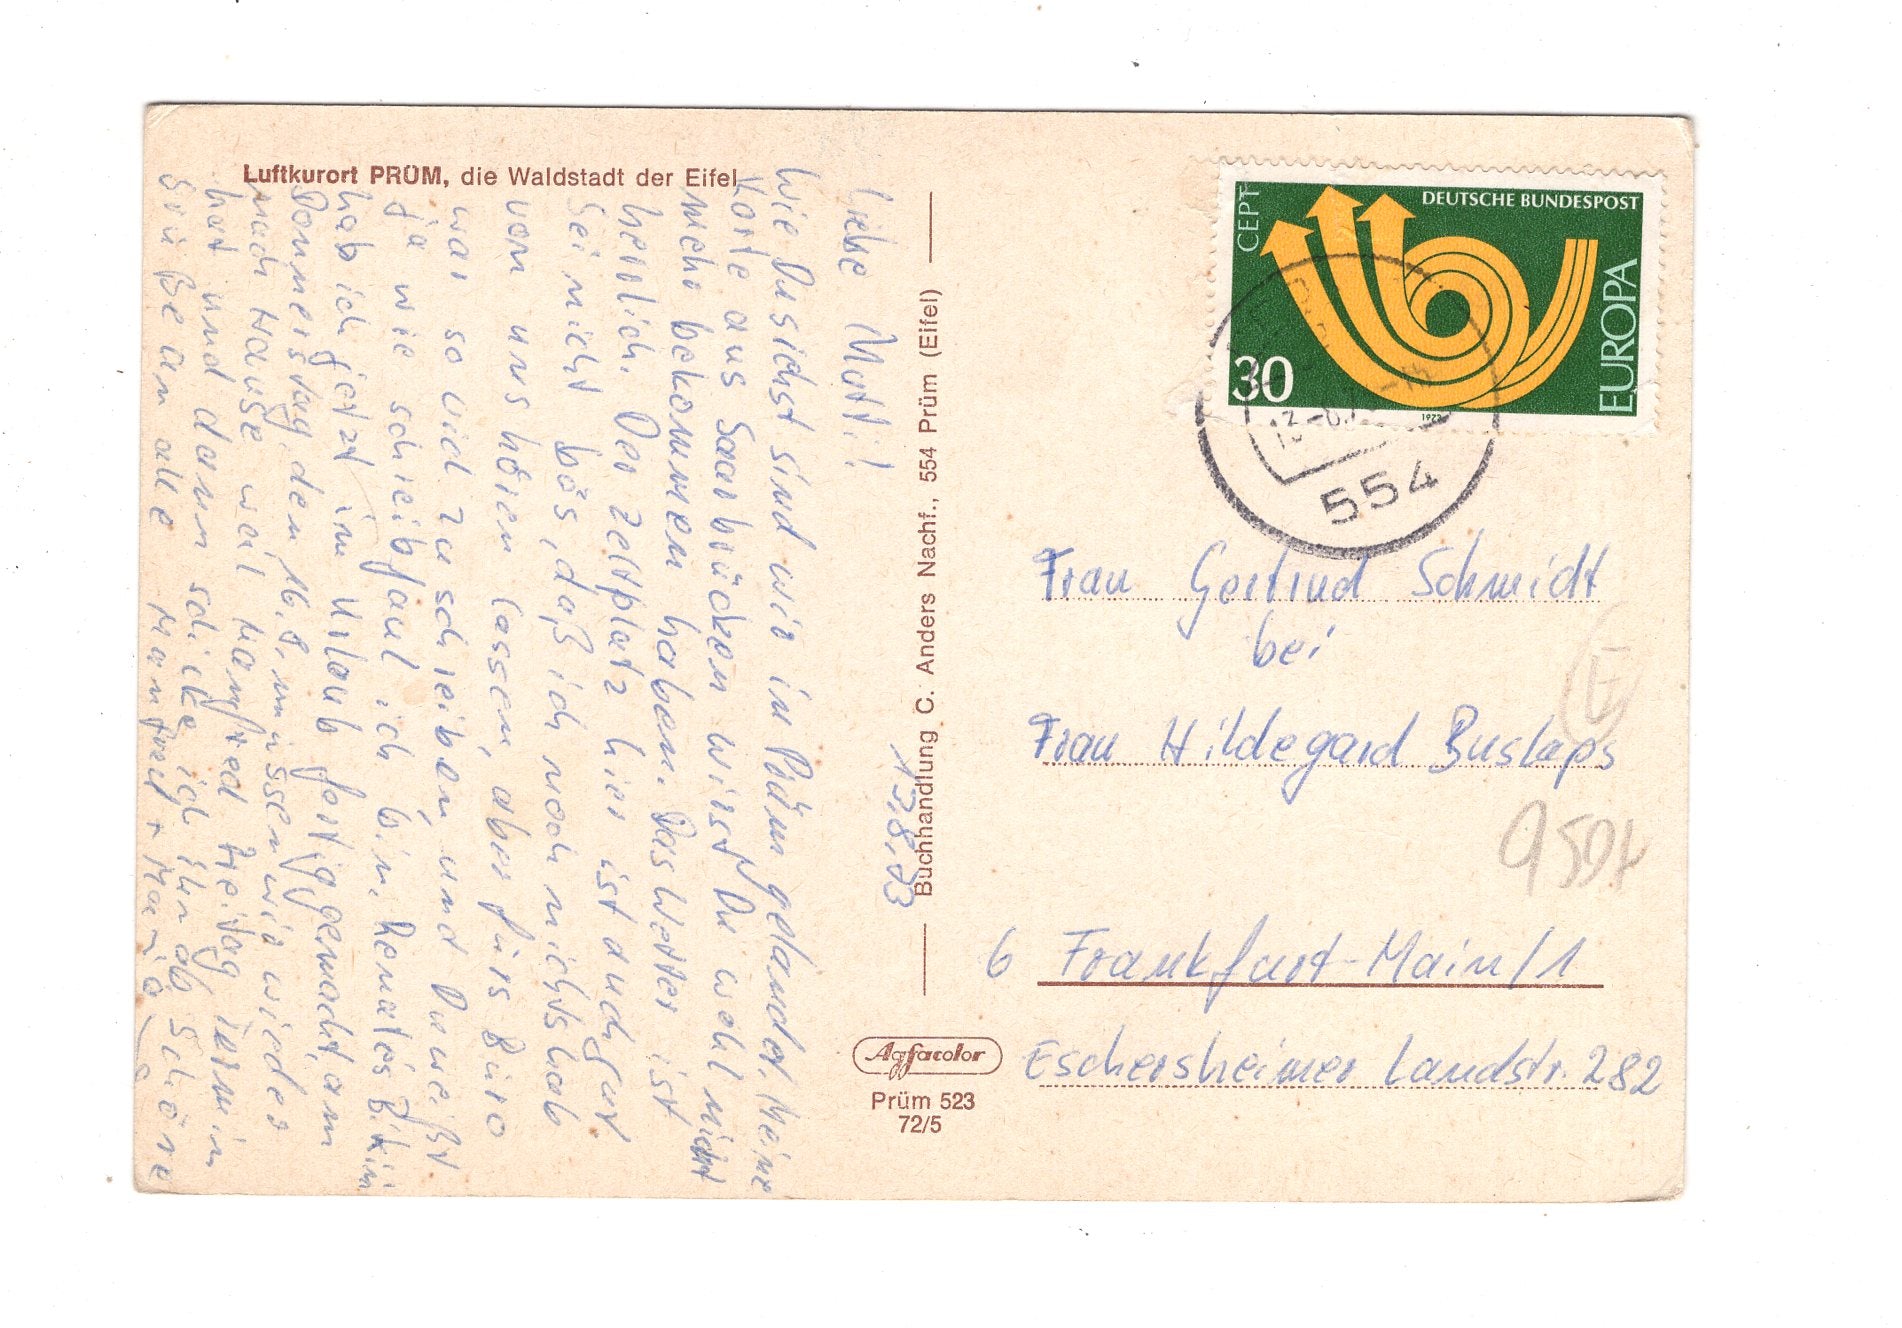 Luftkurort PRÜM, die Waldstadt der Eifel
13.8.73
Liebe Mutti!
Wie Du siehst sind wir in Prüm gelandet. Meine
Karte aus Saarbrücken wirst Du wohl nicht
mehr bekommen haben. Das Wetter ist
herrlich. Der Zeltplatz hier ist auch gut
Sei nicht bös, daß ich noch nichts hab
von uns hören lassen, aber fürs Büro
war so viel zu schreiben, und Du weißt
ja wie schreibfaul ich bin. Renates
hab ich jetzt im Urlaub fertiggemacht, am
Donnerstag den 16.8. müssen wir wieder
nach Hause weil Manfred Freitag Termin
hat und dann schicke ich ihn ab Schöne
Grüße an alle Manfred + Maria
Buchhandlung C. Anders Nachf., 554 Prüm (Eifel)
Agfacolor
Prüm 523
72/5
CEPT
DEUTSCHE BUNDESPOST
EUROPA
30
1973
13.-8.7
554
Frau Gertrud Schmidt
bei
Frau Hildegard Buslaps
6 Frankfurt-Main/1
Eschersheimer Landstr. 282